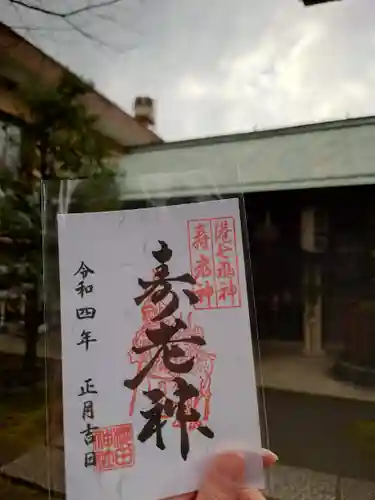 港七福神
寿老神
寿老神
令和四年 正月吉日